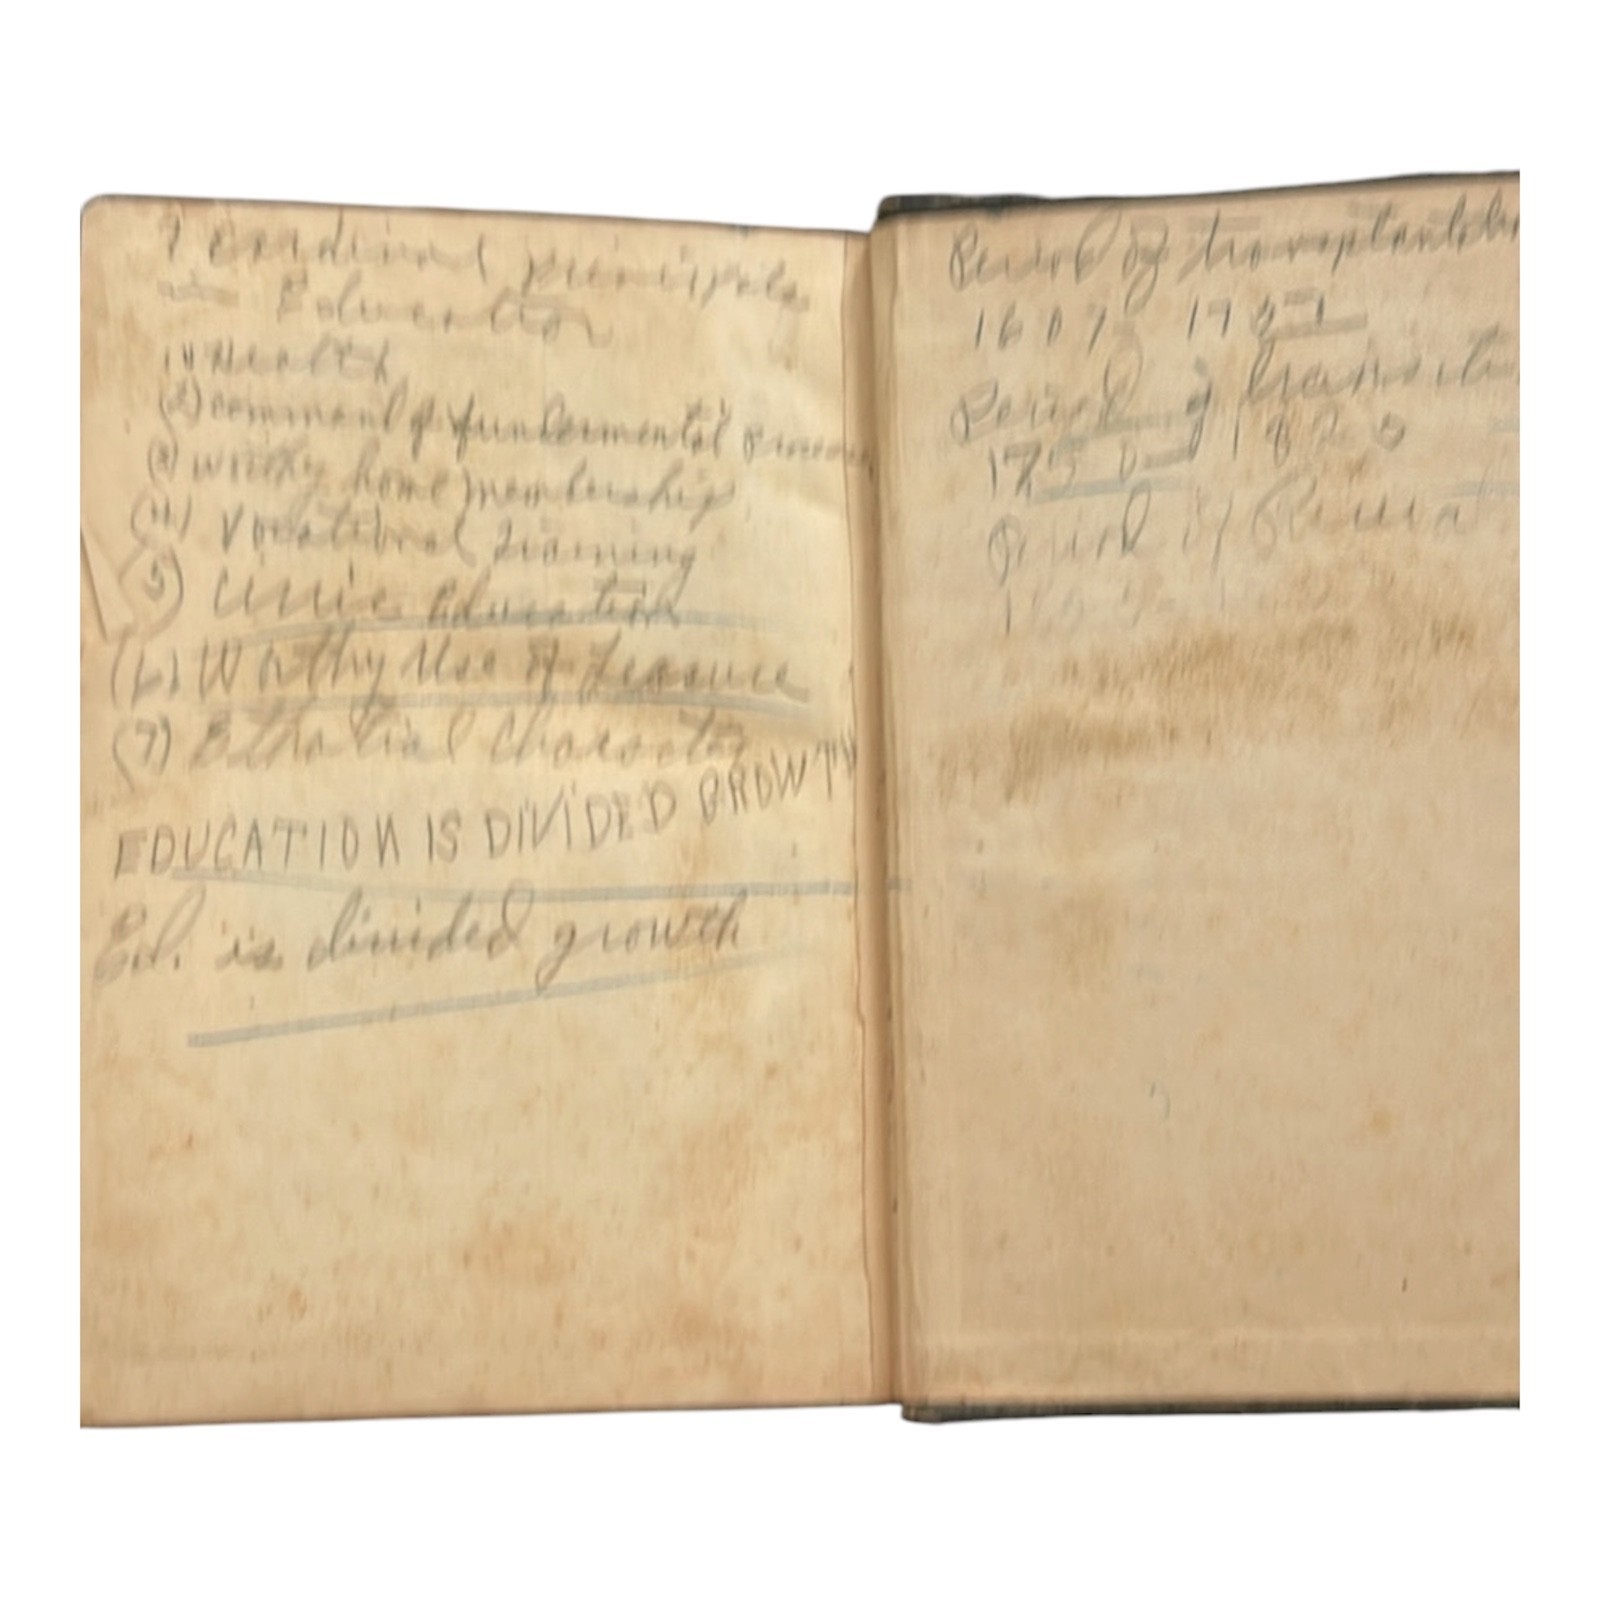 7 cardinal principles
in Education
1) Health
(2) command of fundermental Process
(3) worthy home membership
(4) Vocational Training
5) Civic Education
(6) Worthy Use of Leasure
(7) Character
EDUCATION IS DIVIDED GROWTH
Ed. is divided growth
Period of transplantation
1607 17
Period of transition
1750 1820
Period of